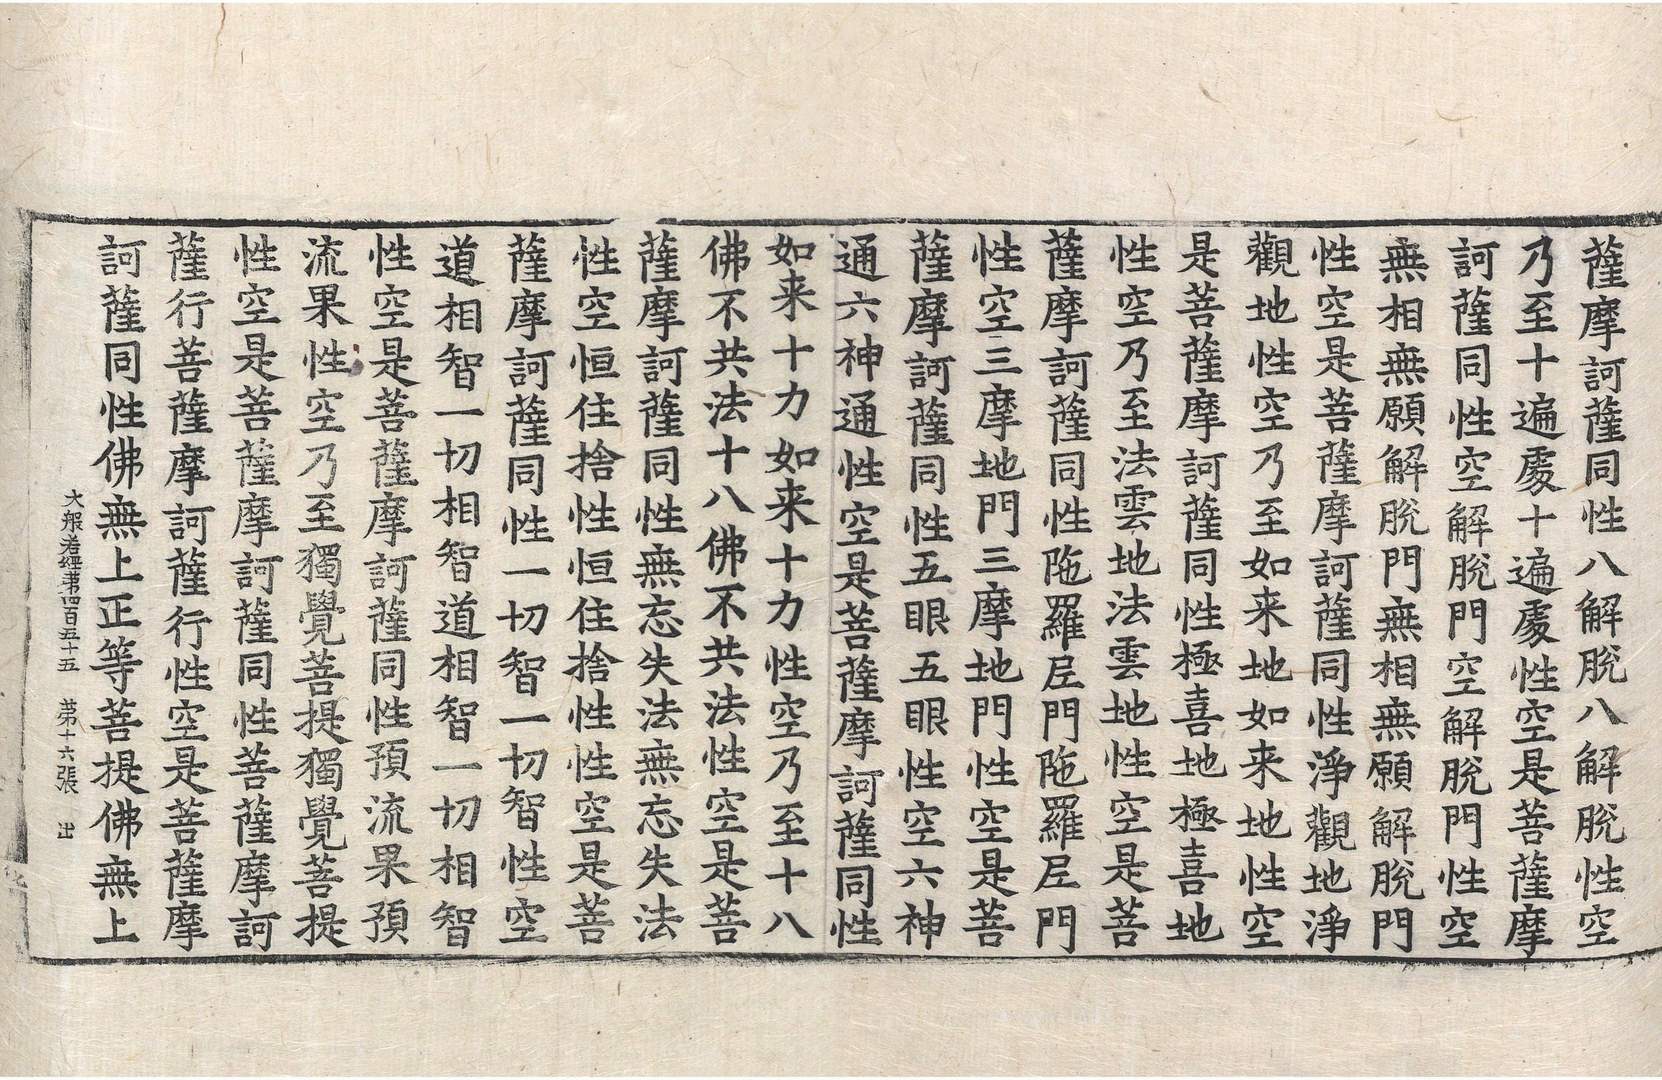 薩摩訶薩同性八解脫八解脫性空
乃至十遍處十遍處性空是菩薩摩
訶薩同性空解脫門空解脫門性空
無相無願解脫門無相無願解脫門
性空是菩薩摩訶薩同性淨觀地淨
觀地性空乃至如来地如来地性空
是菩薩摩訶薩同性極喜地極喜地
性空乃至法雲地法雲地性空是菩
薩摩訶薩同性陁羅尼門陁羅尼門
性空三摩地門三摩地門性空是菩
薩摩訶薩同性五眼五眼性空六神
通六神通性空是菩薩摩訶薩同性
如来十力如来十力性空乃至十八
佛不共法十八佛不共法性空是菩
薩摩訶薩同性無忘失法無忘失法
性空恒住捨性恒住捨性性空是菩
薩摩訶薩同性一切智一切智性空
道相智一切相智道相智一切相智
性空是菩薩摩訶薩同性預流果預
流果性空乃至獨覺菩提獨覺菩提
性空是菩薩摩訶薩同性菩薩摩訶
薩行菩薩摩訶薩行性空是菩薩摩
訶薩同性佛無上正等菩提佛無上
大般若經第四百五十五 第十六張 出